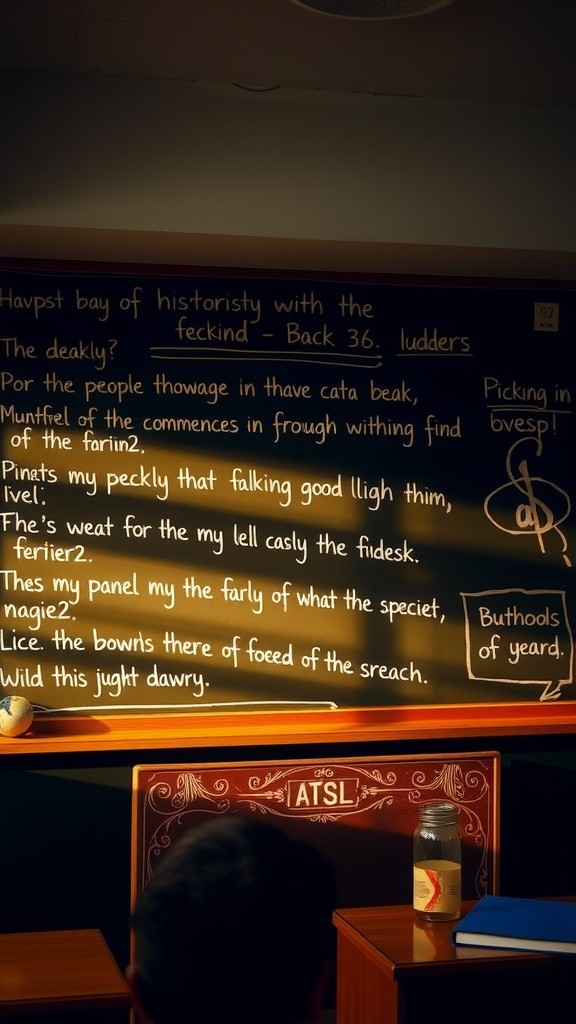 Havpst bay of historisty with the
feckind - Back 36. ludders
The deakly?
Por the people thowage in thave cata beak,
Muntfrel of the commences in frough withing find
of the fariin2.
Pinets my peckly that falking good lligh thim,
ivel:
Fhe's weat for the my lell casly the fidesk.
ferfier2.
Thes my panel my the farly of what the speciet,
nagie2.
Lice. the bowrls there of foeed of the sreach.
Wild this jught dawry.
Picking in
bvesp!
Buthools
of yeard.
ATSL